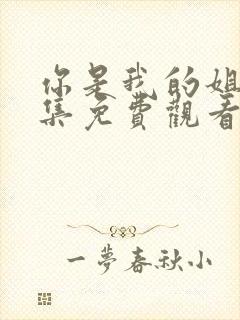 你是我的姐
集免費觀看
一夢春秋小